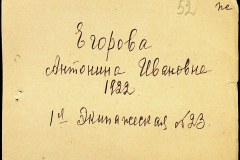 52
Егорова
Антонина Ивановна
1922
1я Экипажеская № 23.